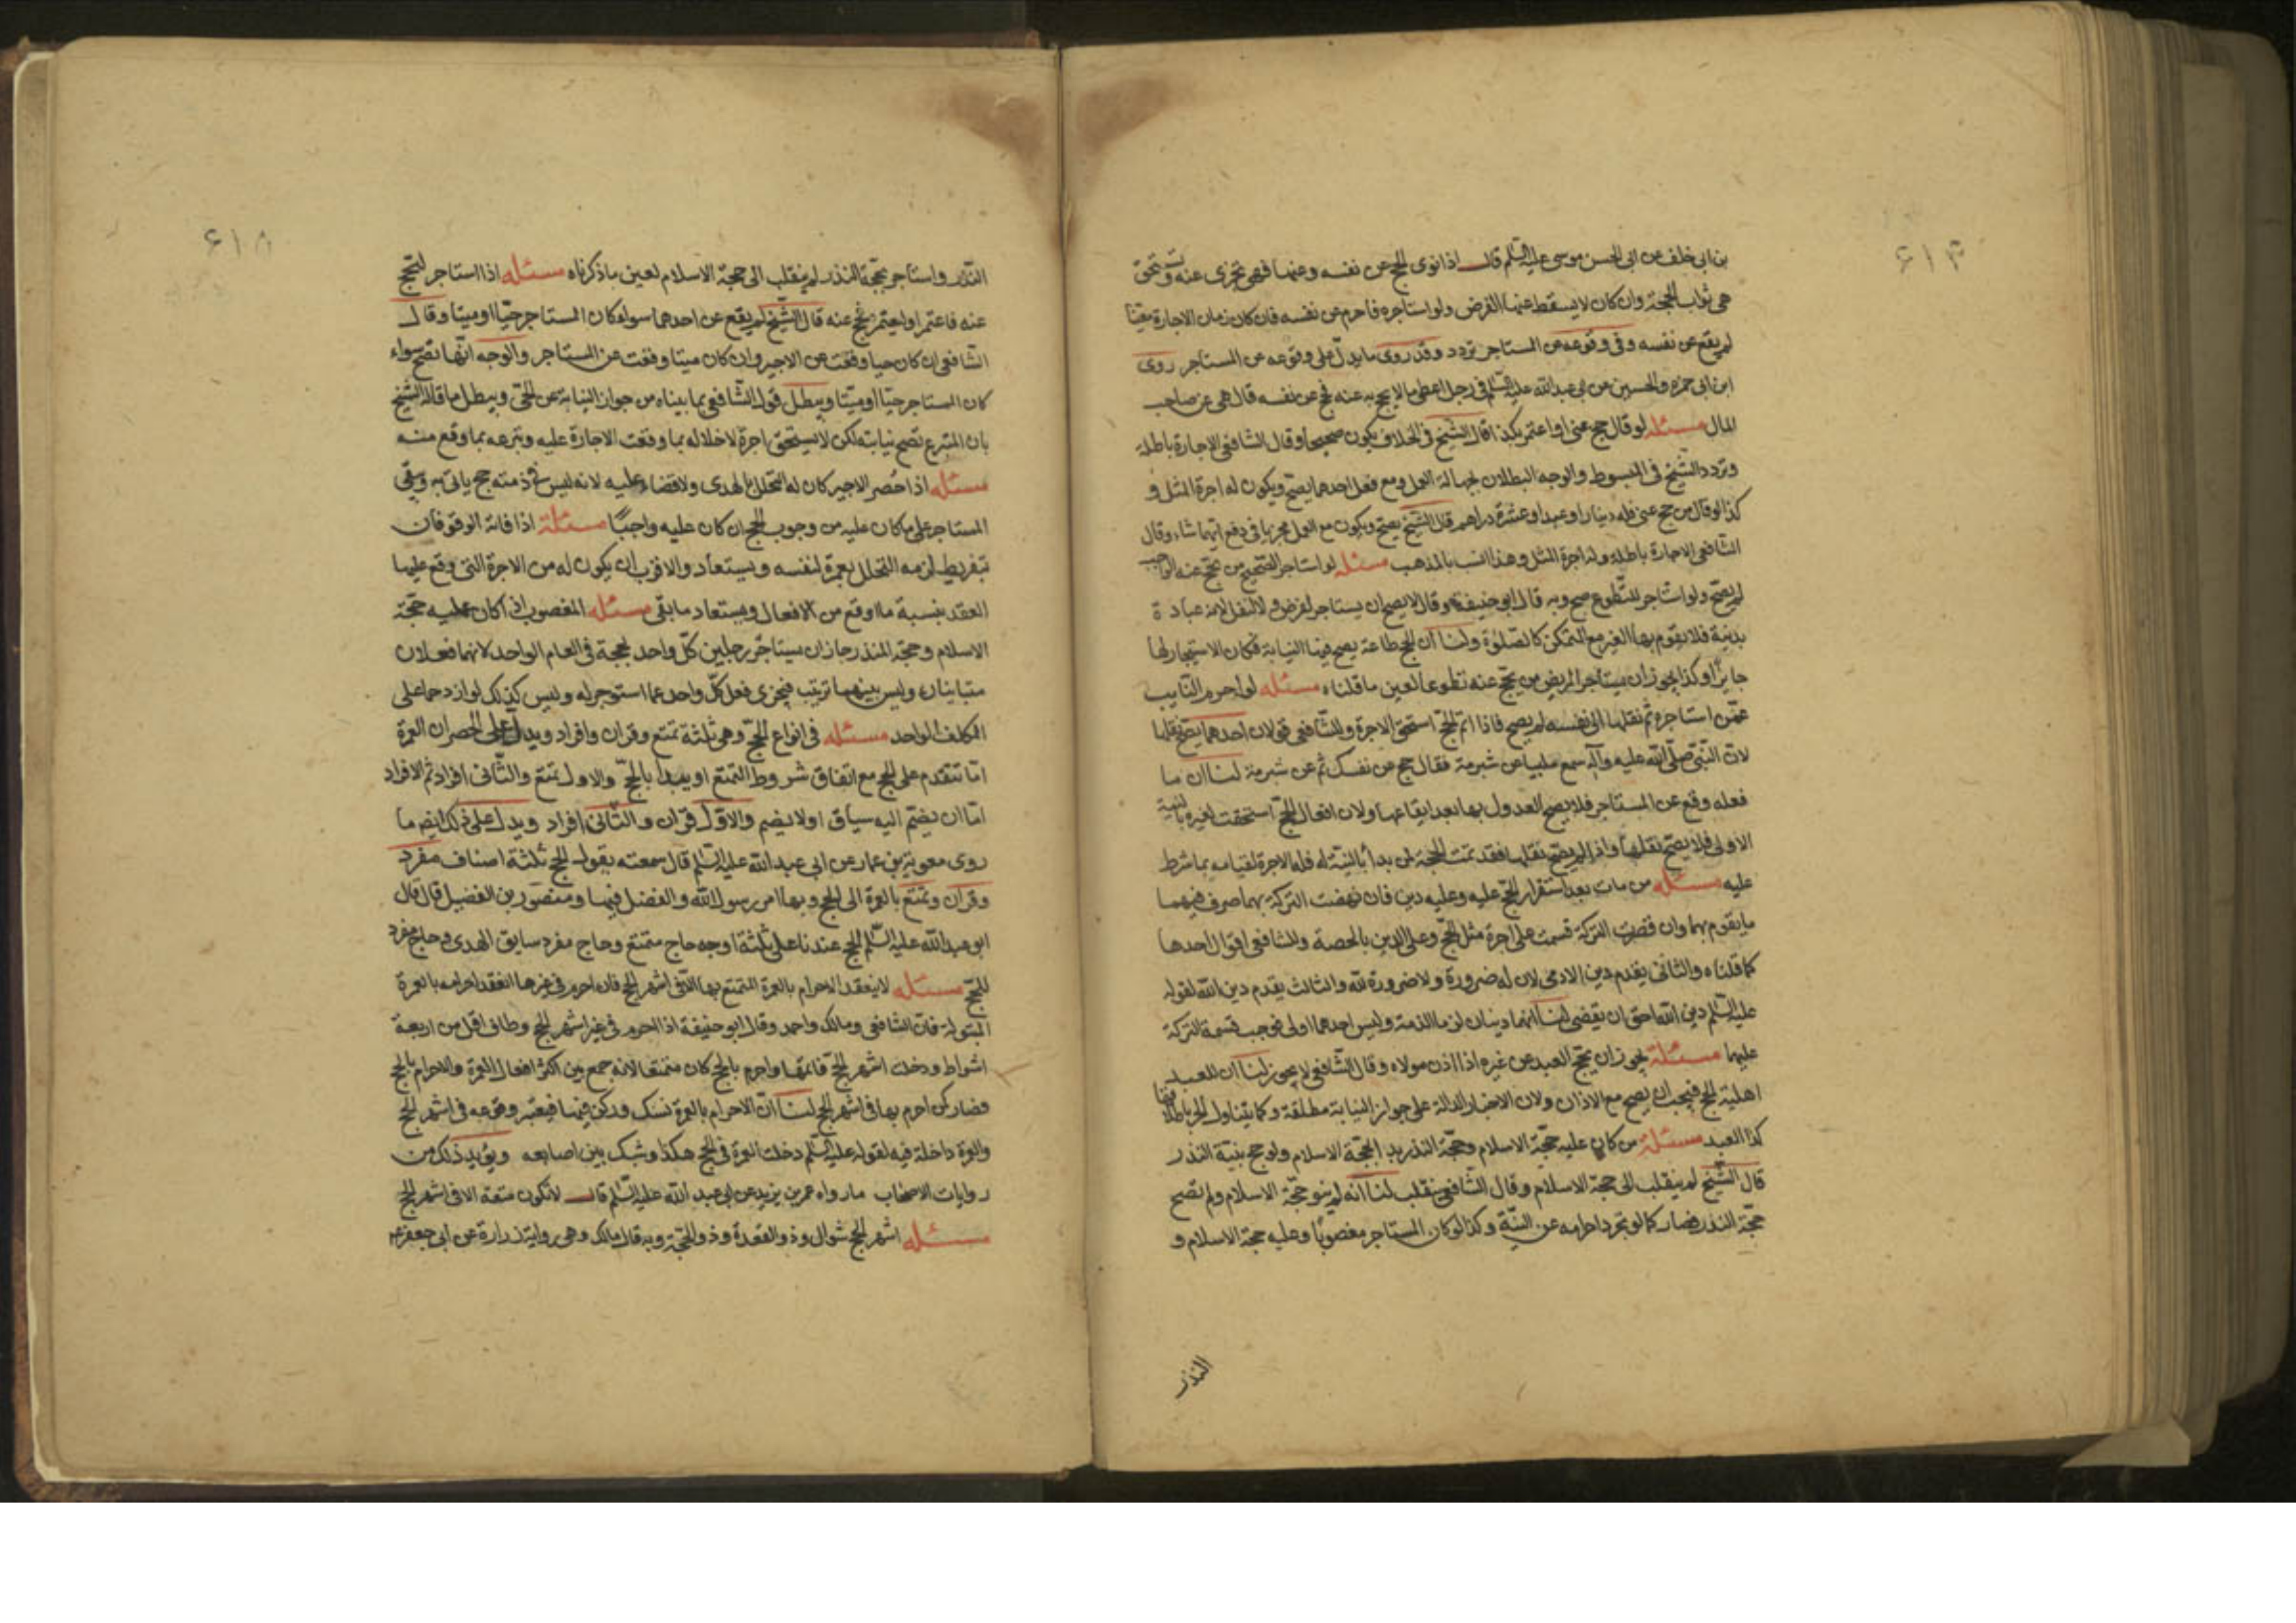 ۶۱۴
بن ابی خلف عن ابی الحسن موسی علیه السلم قال اذا نوی الحج عن نفسه وعنها فهی تجزی عنه وتستحق
هی ثواب الحجة وان کان لا یسقط عنها الفرض ولو استاجره فاحرم عن نفسه فان کان زمان الاجارة معینا
لم یقع عن نفسه وفی وقوعه عن المستاجر تردد وقد روی ما یدل علی وقوعه عن المستاجر روی
ابن ابی حمزه والحسین عن ابی عبدالله علیه السلم فی رجل اعطی مالا یحج به عنه فحج عن نفسه قال هی عن صاحب
المال مسئله لو قال حج عنی او اعتمر بکذا قال الشیخ فی الخلاف یکون صحیحا وقال الشافعی الاجارة باطلة
وتردد الشیخ فی المبسوط والوجه البطلان لجهالة العمل ومع فعل احدهما یصح ویکون له اجرة المثل و
کذا لو قال من حج عنی فله دینار او عبد او عشرة دراهم قال الشیخ یصح ویکون مع العمل مخیرا فی دفع ایهما شاء وقال
الشافعی الاجارة باطلة وله اجرة المثل وهذا انسب بالمذهب مسئله لو استاجر الصحیح من یحج عنه الواجب
لم یصح ولو استاجر للتطوع صح وبه قال ابو حنیفة وقال لا یصح ان یستاجر لفرض ولا لنفل لانه عبادة
بدنیة فلا یقوم بها الغیر مع التمکن کالصلوة ولنا ان الحج طاعة یصح فیها النیابة فکان الاستیجار لها
جایزا وکذا یجوز ان یستاجر المریض من یحج عنه تطوعا لعین ما قلناه مسئله لو احرم النایب
عمن استاجره ثم نقلها الی نفسه لم یصح فاذا اتم الحج استحق الاجرة وللشافعی قولان احدهما یصح نقلها
لان النبی صلی الله علیه وآله سمع ملبیا عن شبرمة فقال حج عن نفسک ثم عن شبرمة لنا ان ما
فعله وقع عن المستاجر فلا یصح العدول بها بعد ایقاعها ولان افعال الحج استحقت لغیره بالنیة
الاولی فلا یصح نقلها واذا لم یصح نقلها فقد تمت الحجة لمن بدأ بالنیة له فله الاجرة لقیامه بما شرط
علیه مسئله من مات بعد استقرار الحج علیه وعلیه دین فان نهضت الترکة بهما صرف فیهما
ما یقوم بهما وان قصرت الترکة قسمت علی اجرة مثل الحج وعلی الدین بالحصة وللشافعی اقوال احدها
کما قلناه والثانی یقدم دین الادمی لان له ضرورة ولا ضرورة لله والثالث یقدم دین الله لقوله
علیه السلم دین الله احق ان یقضی لنا انهما دینان لزما الذمة ولیس احدهما اولی فوجب قسمة الترکة
علیهما مسئلة یجوز ان یحج العبد عن غیره اذا اذن مولاه وقال الشافعی لا یجوز لنا ان للعبد
اهلیة الحج فیجب ان یصح مع الاذن ولان الاخبار الدالة علی جواز النیابة مطلقة وکما یتناول الحر باطلاقها
کذا العبد مسئلة من کان علیه حجة الاسلام وحجة النذر بدا بحجة الاسلام ولو حج بنیة النذر
قال الشیخ لم ینقلب الی حجة الاسلام وقال الشافعی ینقلب لنا انه لم ینو حجة الاسلام ولم تصح
حجة النذر فصار کما لو تجرد احرامه عن النیة وکذا لو کان المستاجر مغصوبا وعلیه حجة الاسلام و
النذر
۶۱۵
النذر واستاجر بحجة النذر لم ینقلب الی حجة الاسلام لعین ما ذکرناه مسئله اذا استاجر لتحج
عنه فاعتمر او لیعتمر فحج عنه قال الشیخ لم یقع عن احدهما سواء کان المستاجر حیا او میتا وقال
الشافعی ان کان حیا وقعت عن الاجیر وان کان میتا وقعت عن المستاجر والوجه انها تصح سواء
کان المستاجر حیا او میتا ویبطل قول الشافعی بما بیناه من جواز النیابة عن الحی ویبطل ما قاله الشیخ
بان المتبرع تصح نیابته لکن لا یستحق اجرة لاخلاله بما وقعت الاجارة علیه وتبرعه بما وقع منه
مسئله اذا حصر الاجیر کان له التحلل بالهدی ولا قضاء علیه لانه لیس فی ذمته حج یاتی به وبقی
المستاجر علی ما کان علیه من وجوب الحج ان کان علیه واجبا مسئلة اذا فاته الوقوفان
بتفریط لزمه التحلل بعمرة لنفسه ویستعاد والاقرب ان یکون له من الاجرة التی وقع علیها
العقد بنسبة ما اوقع من الافعال ویستعاد ما بقی مسئله المغصوب اذا کان علیه حجة
الاسلام وحجة النذر جاز ان یستاجر رجلین کل واحد بحجة فی العام الواحد لانهما فعلان
متباینان ولیس بینهما ترتیب فیجزی فعل کل واحد عما استوجر له ولیس کذلک لو ازدحما علی
المکلف الواحد مسئله فی انواع الحج وهی ثلثة تمتع وقران وافراد ویدل علی الحصر ان العمرة
اما تتقدم علی الحج مع اتفاق شروط التمتع او یبدا بالحج والاول تمتع والثانی افراد ثم الافراد
اما ان یضم الیه سیاق اولا یضم والاول قران والثانی افراد ویدل علی ذلک ایضا ما
روی معویة بن عمار عن ابی عبد الله علیه السلم قال سمعته یقول الحج ثلثة اصناف مفرد
وقران وتمتع بالعمرة الی الحج وبها امر رسول الله والفضل فیها ومنصور بن الفضیل قال قال
ابو عبدالله علیه السلم الحج عندنا علی ثلثة اوجه حاج متمتع وحاج مفرد سایق الهدی وحاج مفرد
للحج مسئله لا ینعقد الاحرام بالعمرة المتمتع بها الا فی اشهر الحج فان احرم فی غیرها انعقد احرامه بالعمرة
المبتولة قاله الشافعی ومالک واحمد وقال ابو حنیفة اذا احرم فی غیر اشهر الحج وطاف اقل من اربعة
اشواط ودخلت اشهر الحج فاتمها واحرم بالحج کان متمتعا لانه جمع بین اکثر افعال العمرة والاحرام بالحج
فصار کمن احرم بها فی اشهر الحج لنا ان الاحرام بالعمرة نسک ورکن فیها فیعتبر وقوعه فی اشهر الحج
والعمرة داخلة فیه لقوله علیه السلم دخلت العمرة فی الحج هکذا وشبک بین اصابعه ویؤید ذلک من
روایات الاصحاب ما رواه عمر بن یزید عن ابی عبد الله علیه السلم قال لا تکون متعة الا فی اشهر الحج
مسئله اشهر الحج شوال وذو القعدة وذو الحجة وبه قال مالک وهی روایة زرارة عن ابی جعفر ع